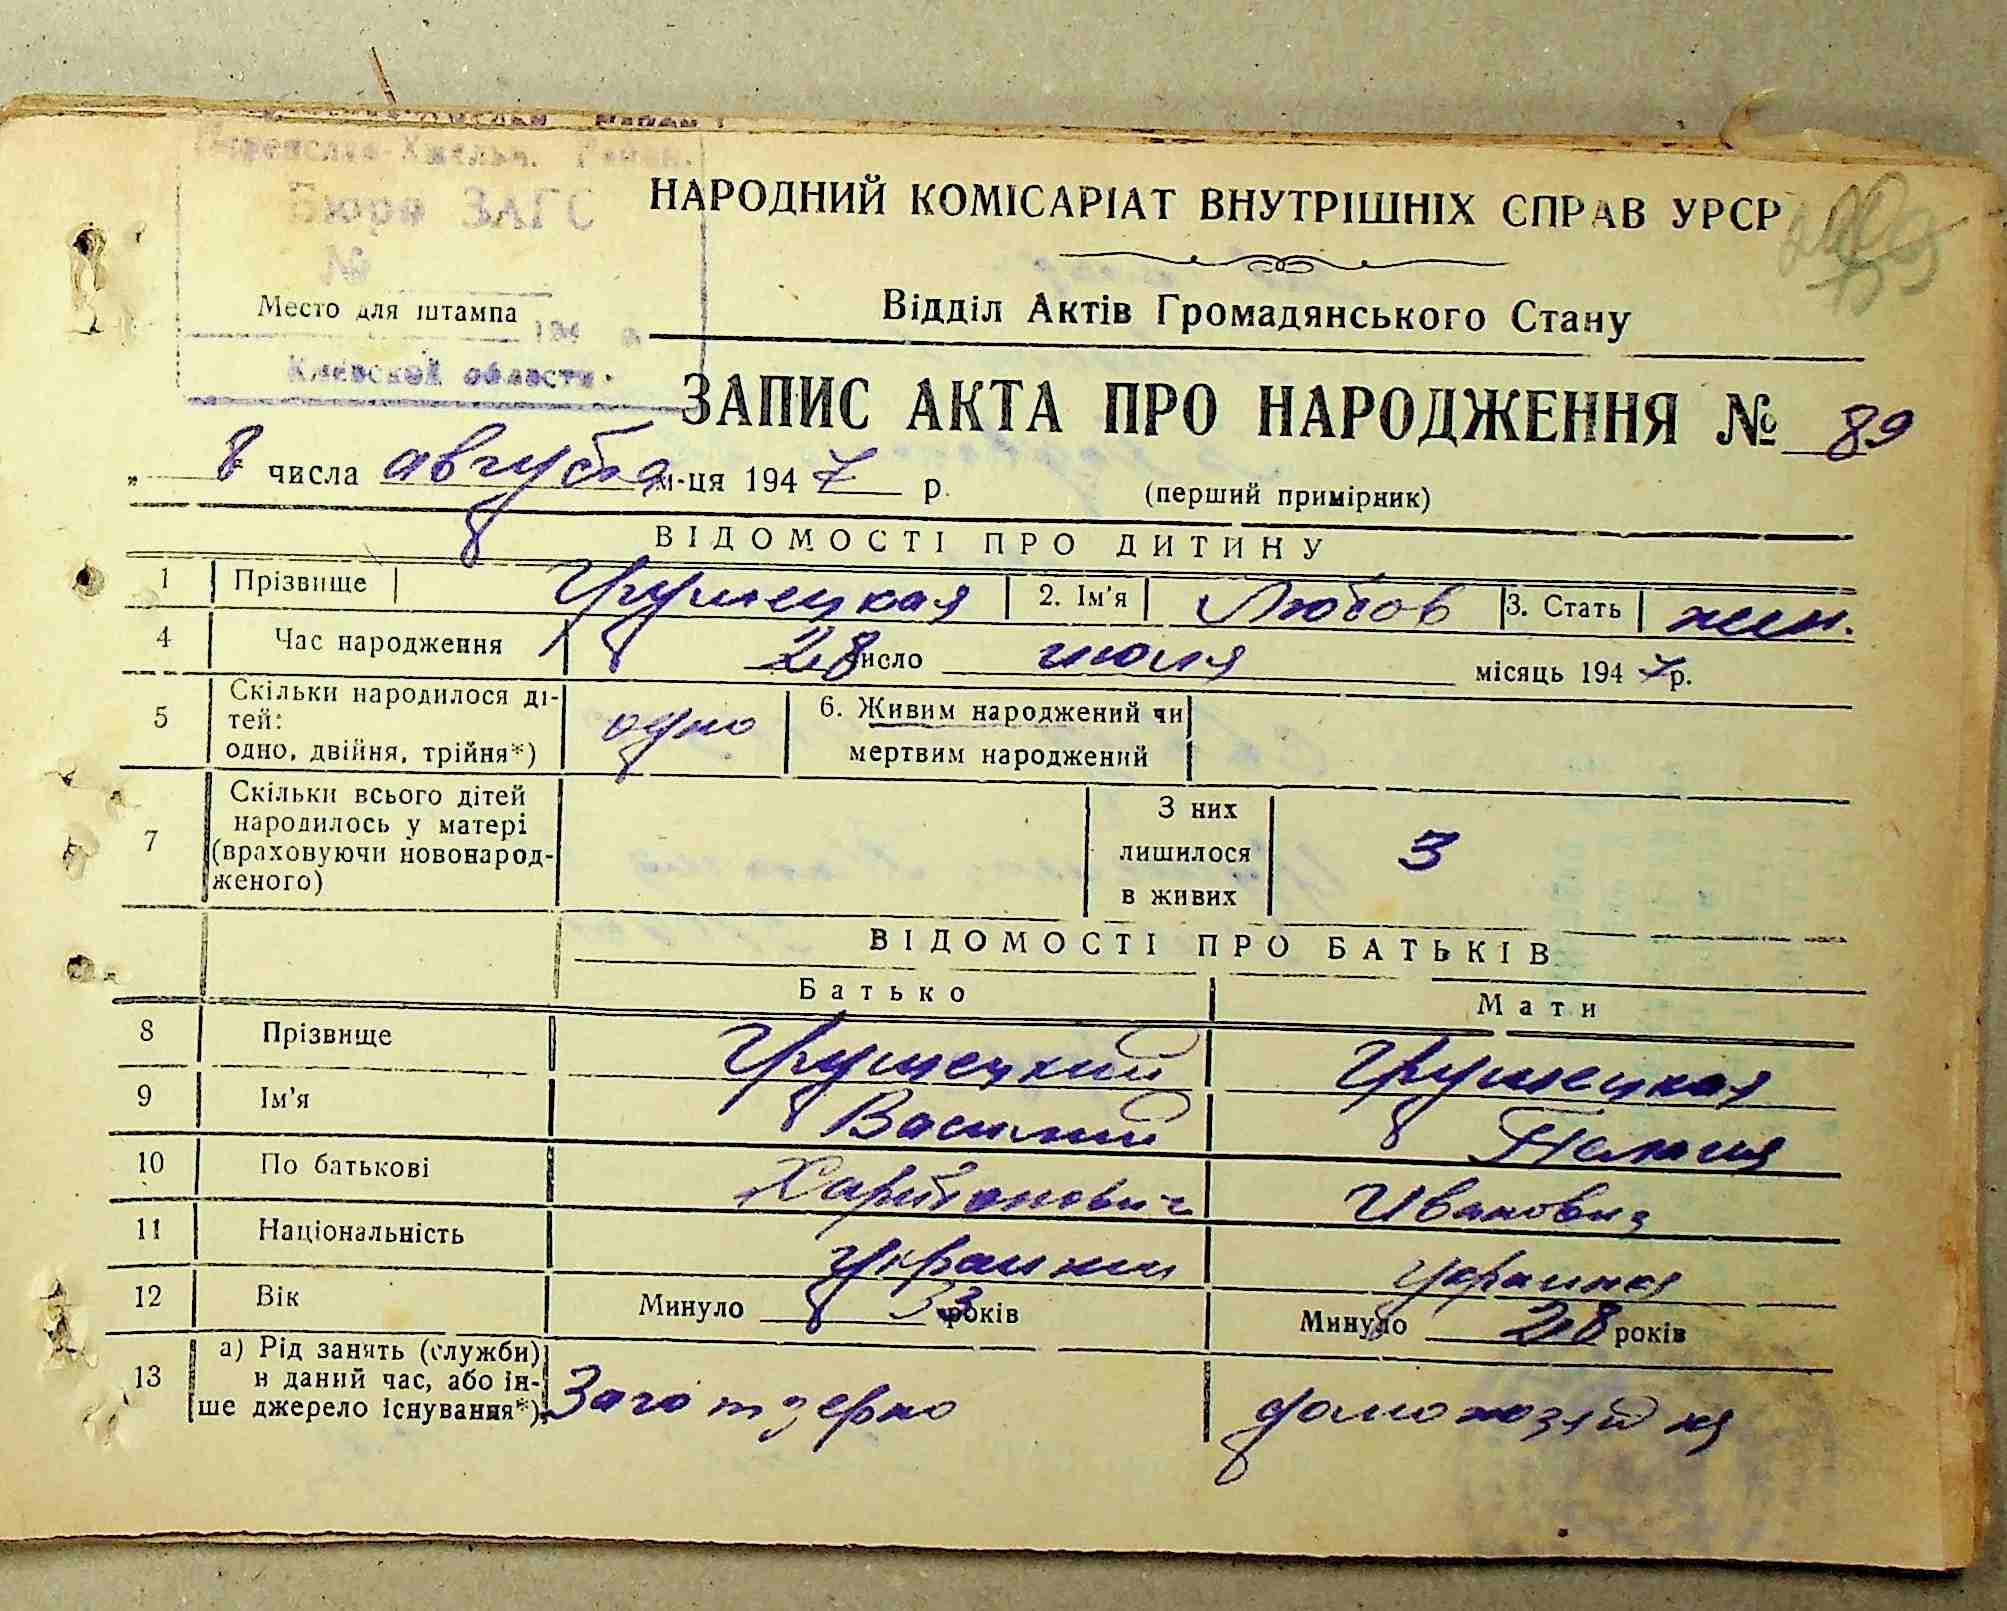 Бюро ЗАГС
№
Место для штампа
194
Киевской области.
НАРОДНИЙ КОМІСАРІАТ ВНУТРІШНІХ СПРАВ УРСР
Відділ Актів Громадянського Стану
ЗАПИС АКТА ПРО НАРОДЖЕННЯ № 89
„ 8 числа августа м-ця 1947 р. (перший примірник)
ВІДОМОСТІ ПРО ДИТИНУ
1 Прізвище Грушецкая 2. Ім'я Любов 3. Стать жен.
4 Час народження 28 число июля місяць 1947 р.
5 Скільки народилося ді-
тей:
одно, двійня, трійня*) одно 6. Живим народжений чи
мертвим народжений
7 Скільки всього дітей
народилось у матері
(враховуючи новонарод-
женого)
З них
лишилося
в живих 3
ВІДОМОСТІ ПРО БАТЬКІВ
Батько Мати
8 Прізвище Грушецкий Грушецкая
9 Ім'я Василий
10 По батькові Харитонович Ивановна
11 Національність
12 Вік Минуло 33 років Минуло 28 років
13 а) Рід занять (служби)
в даний час, або ін-
ше джерело існування*) Заготзерно домохозяйка